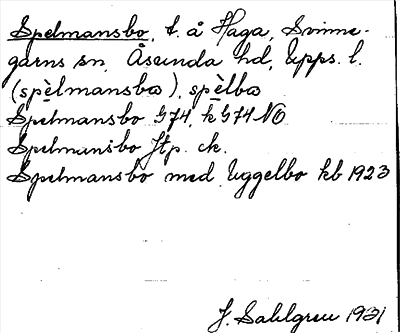 Spelmansbo, t. å Haga, Svinne-
garns sn, Åsunda hd, Upps. l.
(spèlmansbo), spèlbo
Spelmansbo G74, k G74 NO
Spelmansbo Jtp. ck.
Spelmansbo med Uggelbo kb 1923
J. Sahlgren 1931